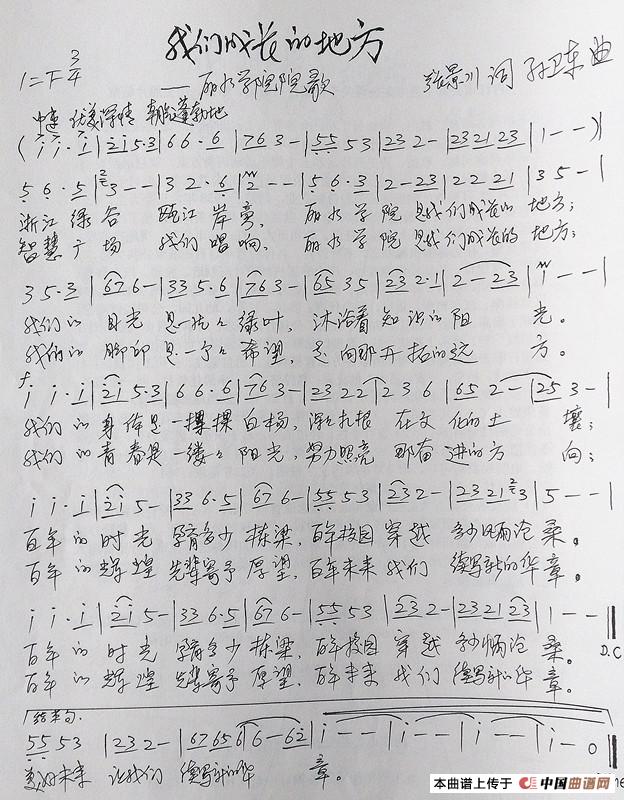 我们成长的地方
1=F 3/4
——丽水学院院歌
张景川 词 孙卫东 曲
中速 优美深情 朝气蓬勃地
(i i· i | 2i 5·3 | 6 6 · 6 | 76 3 - | 55 53 | 23 2 - | 23 21 23 | 1 - - )|
5 6 · 5 | 3 - - | 3 2 · 6 | 2 - - | 5 6 · 3 | 2 - 23 | 22 21 | 3 5 - |
浙江绿谷 瓯江岸旁, 丽水学院 是我们成长的 地方;
智慧广场 我们唱响, 丽水学院 是我们成长的 地方;
3 5 · 3 | 67 6 - | 33 5 · 6 | 76 3 - | 65 35 | 23 2·1 | 2 - 23 | i - - |
我们的 目光 是一片片 绿叶, 沐浴着 知识的阳 光。
我们的 脚印 是一个个 希望, 走向那开拓的远 方。
f
i i · i | 2i 5·3 | 6 6 · 6 | 76 3 - | 23 22 | 2 3 6 | 65 2 - | 25 3 - |
我们的身体是一棵棵白杨, 深深扎根 在文化的土 壤;
我们的青春是一缕缕阳光, 努力照亮 那奋进的方 向;
i i · i | 2i 5 - | 33 6·5 | 67 6 - | 55 53 | 23 2 - | 23 21 | 5 - - |
百年的时光 孕育多少栋梁, 百年校园 穿越 多少风雨沧桑。
百年的辉煌 先辈寄予厚望, 百年未来 我们 续写新的华章。
i i · i | 2i 5 - | 33 6·5 | 67 6 - | 55 53 | 23 2 - | 23 21 23 | 1 - - ‖
百年的时光 孕育多少栋梁, 百年校园 穿越 多少风雨沧桑。 D.C
百年的辉煌 先辈寄予厚望, 百年未来 我们 续写新的华章。
结束句.
55 53 | 23 2 - | 67 65 6 | 6 - 62 | i - - | i - - | i - - | i - 0 ‖
美好未来 让我们 续写新的华 章。
本曲谱上传于 中国曲谱网